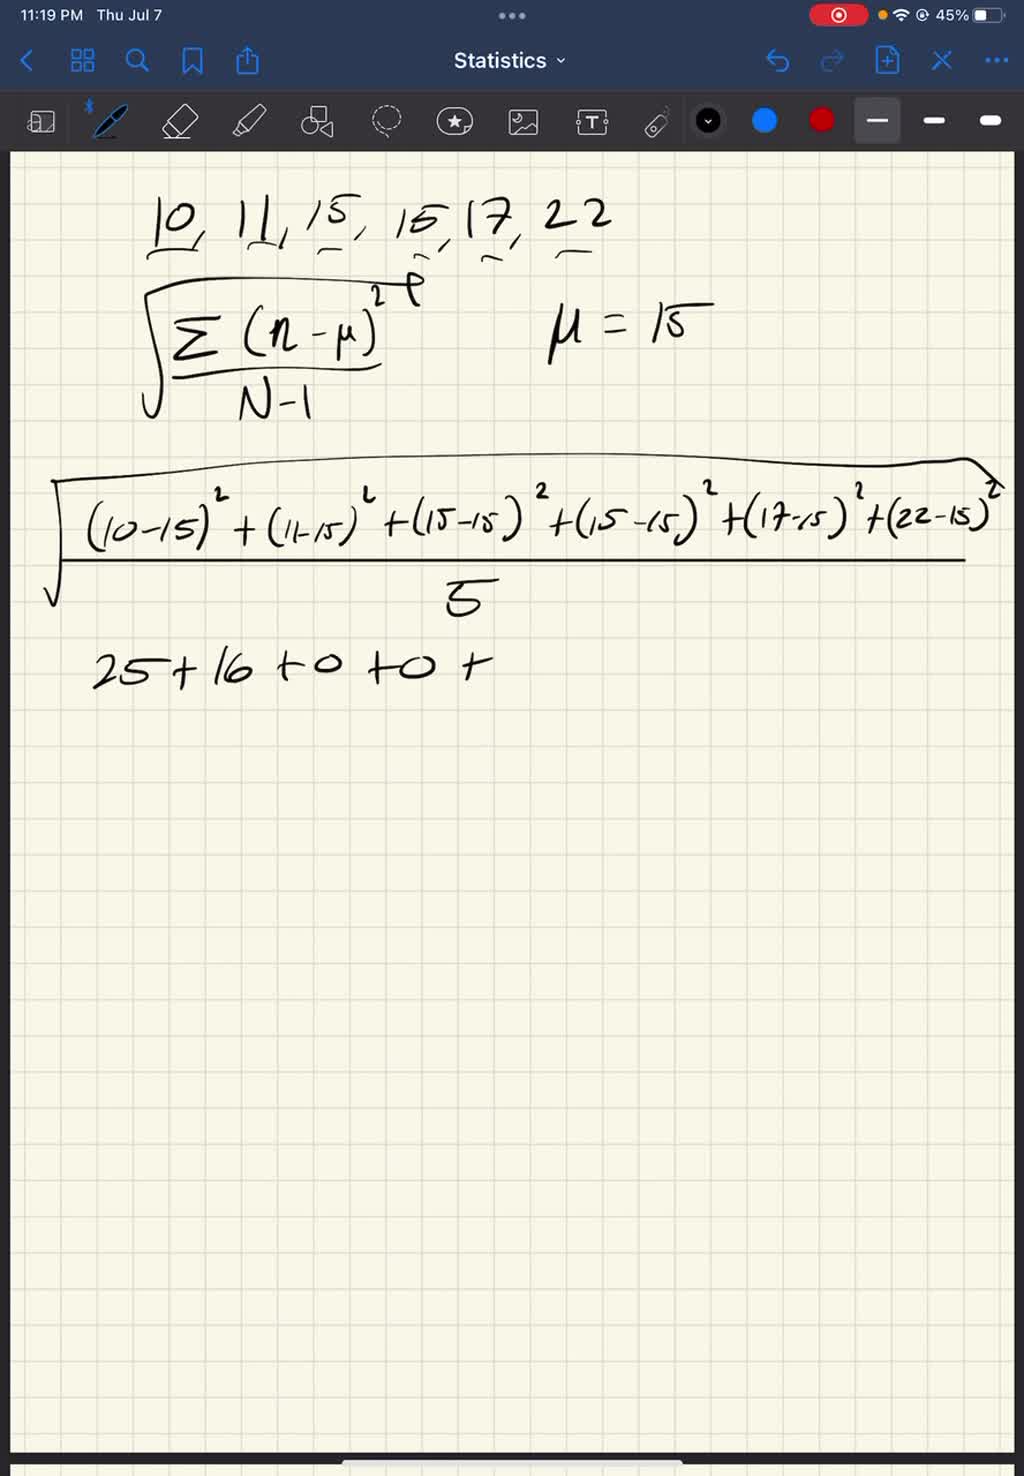 11:19 PM Thu Jul 7
45%
Statistics
T
10, 11, 15, 15, 17, 22
√(Σ(n-μ)²/(N-1)) μ = 15
√(((10-15)² + (11-15)² + (15-15)² + (15-15)² + (17-15)² + (22-15)²)/5)
25 + 16 + 0 + 0 +